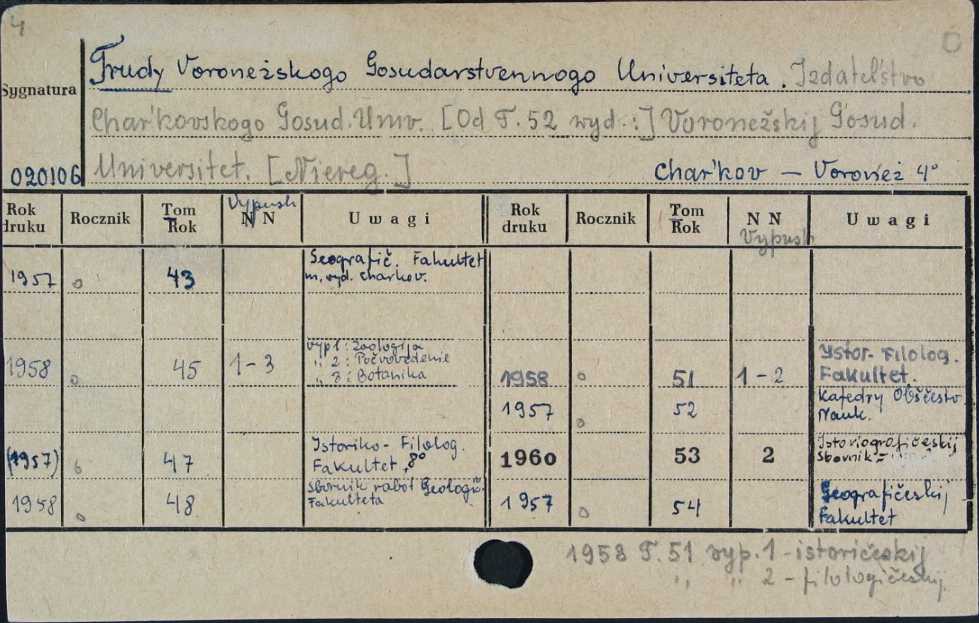 4
Trudy Voronežskogo Gosudarstvennogo Universiteta. Izdatel'stvo
Sygnatura
Char'kovskogo Gosud. Univ. [Od T. 52 wyd.:] Voronežskij Gosud.
Universitet. [Niereg.]
020106 Char'kov — Voronež 4°
Rok druku Rocznik Tom Rok Vypusk N N Uwagi Rok druku Rocznik Tom Rok N N Vypusk Uwagi
1957 43 Geografič. Fakultet
m. wyd. Charkov.
1958 45 1-3 vyp 1: Zoologija
" 2: Počvovedenie
" 3: Botanika
1958 51 1-2 Istor.-Filolog.
Fakultet.
1957 52 Katedry Obščestv.
Nauk.
(1957) 47 Istoriko-Filolog.
Fakultet, 8°
1960 53 2 Istoriografičeskij
Sbornik
1958 48 Sbornik rabot Geologič.
Fakulteta
1957 54 Geografičeskij
Fakultet
1958 T. 51 wyp. 1 - istoričeskij
" " 2 - filologičeskij